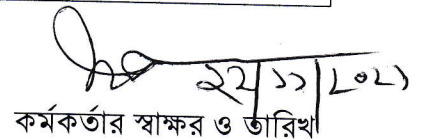 ২২|১১|২০২১
কর্মকর্তার স্বাক্ষর ও তারিখ